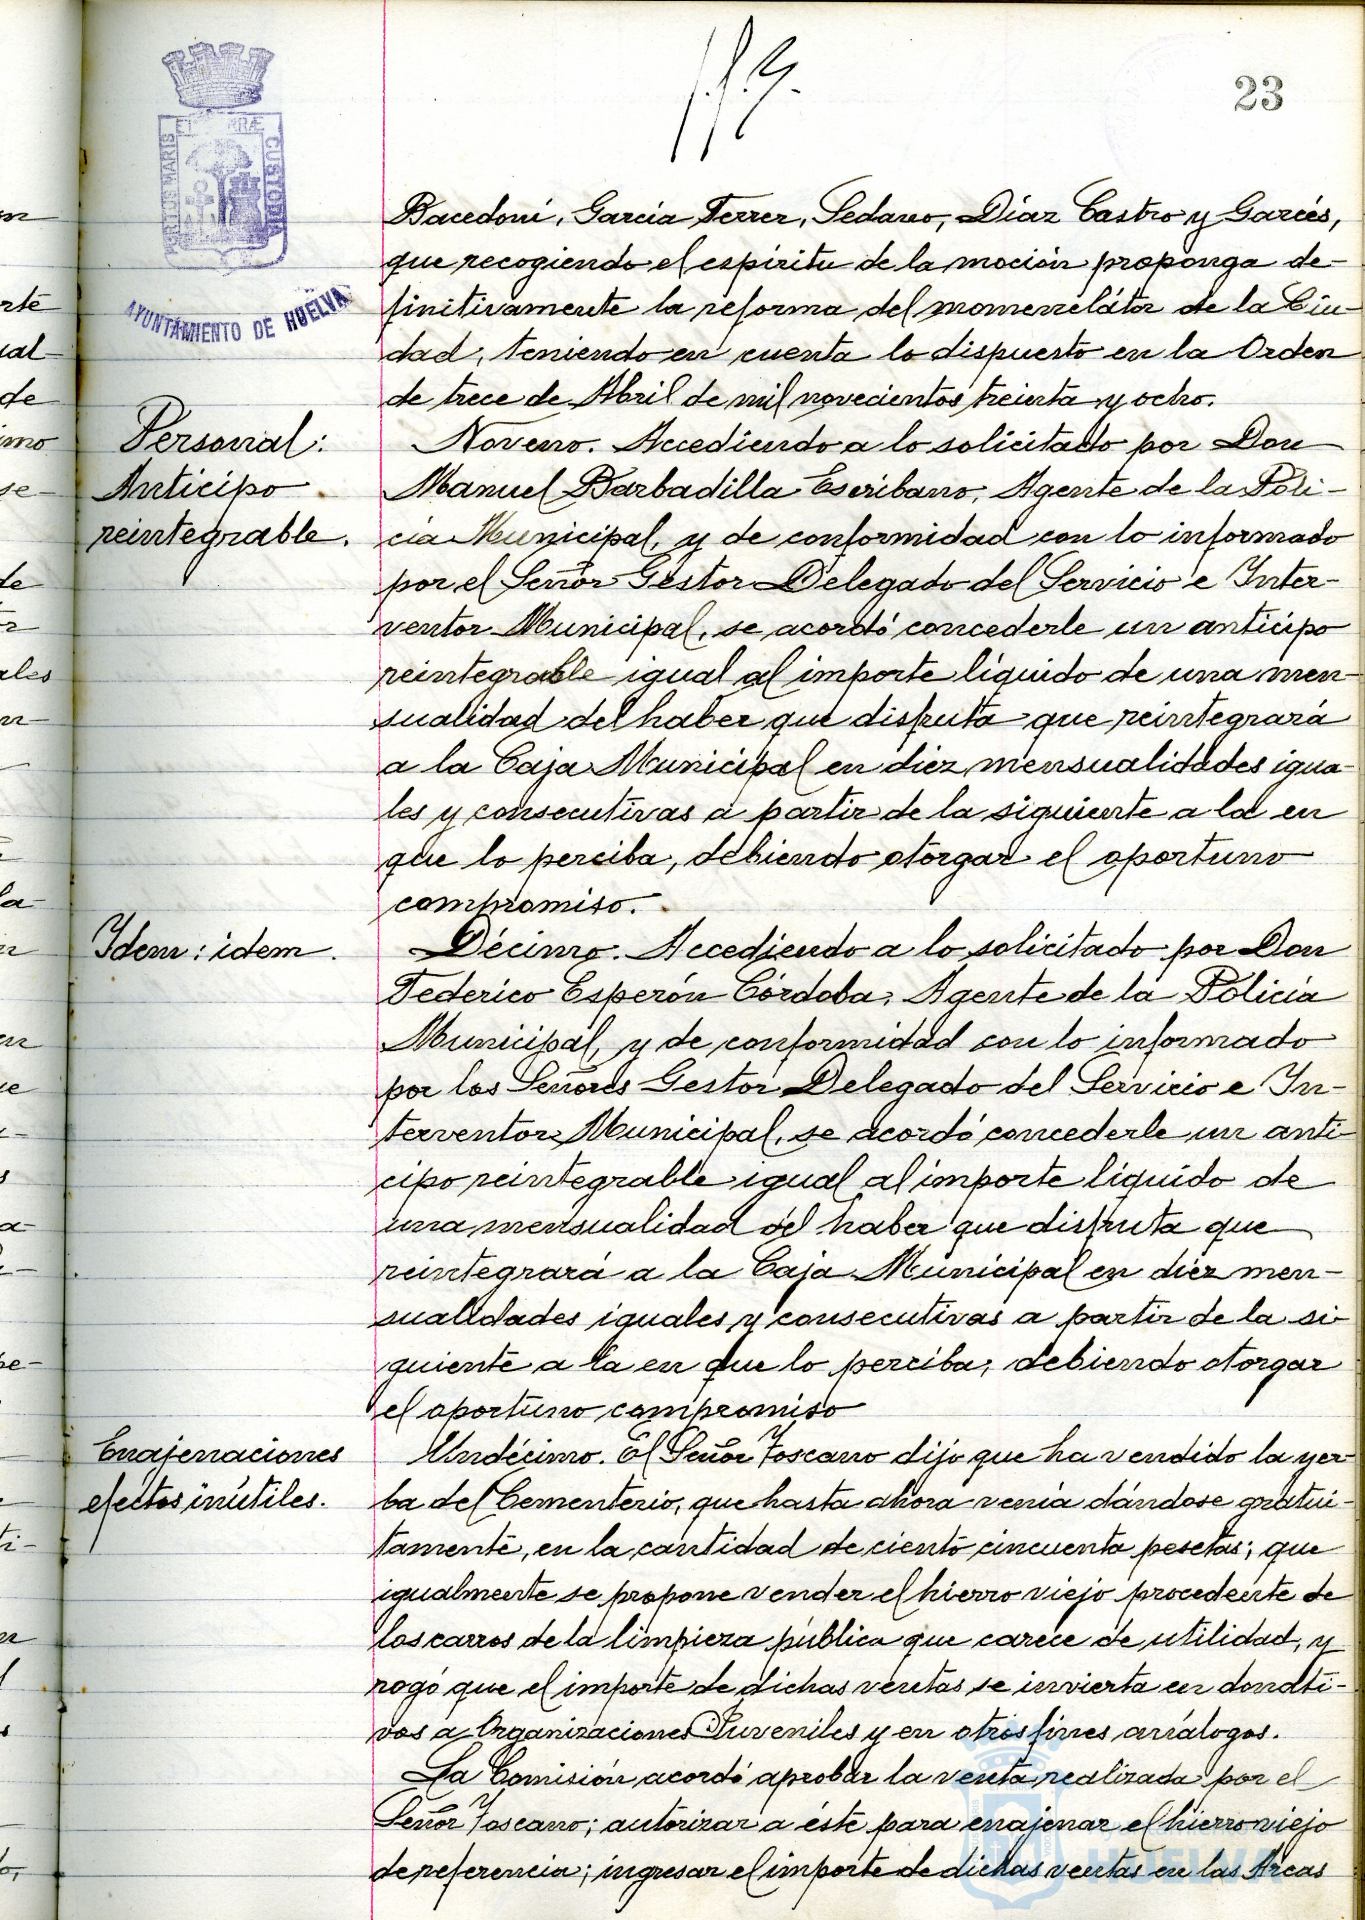 23
PORTUS MARIS ET TERRÆ CUSTODIA
AYUNTAMIENTO DE HUELVA
Bacedoni, García Ferrer, Sedano, Díaz Castro y Garcés,
que recogiendo el espíritu de la moción proponga de-
finitivamente la reforma del momenclátor de la Ciu-
dad, teniendo en cuenta lo dispuesto en la Orden
de trece de Abril de mil novecientos treinta y ocho.
Personal:
Anticipo
reintegrable.
Noveno. Accediendo a lo solicitado por Don
Manuel Barbadilla Escribano, Agente de la Poli-
cia Municipal, y de conformidad con lo informado
por el Señor Gestor Delegado del Servicio e Inter-
ventor Municipal, se acordó concederle un anticipo
reintegrable igual al importe líquido de una men-
sualidad del haber que disfruta que reintegrará
a la Caja Municipal en diez mensualidades igua-
les y consecutivas a partir de la siguiente a la en
que lo perciba, debiendo otorgar el oportuno
compromiso.
Idem: idem.
Décimo. Accediendo a lo solicitado por Don
Federico Esperón Córdoba, Agente de la Policía
Municipal, y de conformidad con lo informado
por los Señores Gestor Delegado del Servicio e In-
terventor Municipal, se acordó concederle un anti-
cipo reintegrable igual al importe líquido de
una mensualidad del haber que disfruta que
reintegrará a la Caja Municipal en diez men-
sualidades iguales y consecutivas a partir de la si-
guiente a la en que lo perciba; debiendo otorgar
el oportuno compromiso
Enajenaciones
efectos inútiles.
Undécimo. El Señor Toscano dijo que ha vendido la yer-
ba del Cementerio, que hasta ahora venía dándose gratui-
tamente, en la cantidad de ciento cincuenta pesetas; que
igualmente se propone vender el hierro viejo procedente de
los carros de la limpieza pública que carece de utilidad, y
rogó que el importe de dichas ventas se invierta en donati-
vos a Organizaciones Juveniles y en otros fines análogos.
La Comisión acordó aprobar la venta realizada por el
Señor Toscano; autorizar a éste para enajenar el hierro viejo
de referencia; ingresar el importe de dichas ventas en las Arcas
HUELVA